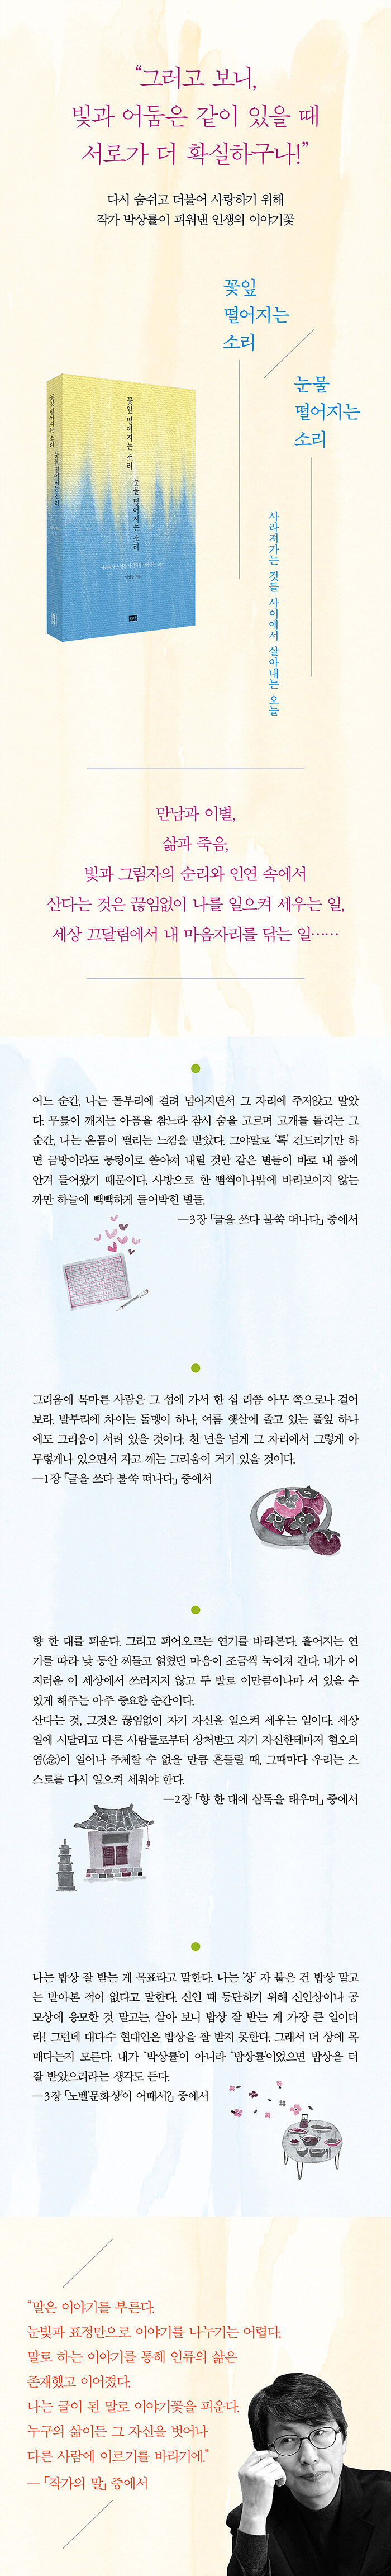 “그러고 보니,
빛과 어둠은 같이 있을 때
서로가 더 확실하구나!”
다시 숨쉬고 더불어 사랑하기 위해
작가 박상률이 피워낸 인생의 이야기꽃
꽃잎
떨어지는
소리
눈물
떨어지는
소리
사라져가는 것들 사이에서 살아내는 오늘
꽃잎 떨어지는 소리
눈물 떨어지는 소리
꽃잎 떨어지는 소리 눈물 떨어지는 소리
만남과 이별,
삶과 죽음,
빛과 그림자의 순리와 인연 속에서
산다는 것은 끊임없이 나를 일으켜 세우는 일,
세상 끄달림에서 내 마음자리를 닦는 일……
어느 순간, 나는 돌부리에 걸려 넘어지면서 그 자리에 주저앉고 말았
다. 무릎이 깨지는 아픔을 참느라 잠시 숨을 고르며 고개를 돌리는 그
순간, 나는 온몸이 떨리는 느낌을 받았다. 그야말로 ‘톡’ 건드리기만 하
면 금방이라도 뭉텅이로 쏟아져 내릴 것만 같은 별들이 바로 내 품에
안겨 들어왔기 때문이다. 사방으로 한 뼘씩이나밖에 바라보이지 않는
까만 하늘에 빽빽하게 들어박힌 별들.
―3장 「글을 쓰다 불쑥 떠나다」 중에서
그리움에 목마른 사람은 그 섬에 가서 한 십 리쯤 아무 쪽으로나 걸어
보라. 발부리에 차이는 돌멩이 하나, 여름 햇살에 졸고 있는 풀잎 하나
에도 그리움이 서려 있을 것이다. 천 년을 넘게 그 자리에서 그렇게 아
무렇게나 있으면서 자고 깨는 그리움이 거기 있을 것이다.
―1장 「글을 쓰다 불쑥 떠나다」 중에서
향 한 대를 피운다. 그리고 피어오르는 연기를 바라본다. 흩어지는 연
기를 따라 낮 동안 찌들고 얽혔던 마음이 조금씩 눅어져 간다. 내가 어
지러운 이 세상에서 쓰러지지 않고 두 발로 이만큼이나마 서 있을 수
있게 해주는 아주 중요한 순간이다.
산다는 것, 그것은 끊임없이 자기 자신을 일으켜 세우는 일이다. 세상
일에 시달리고 다른 사람들로부터 상처받고 자기 자신한테마저 혐오의
염(念)이 일어나 주체할 수 없을 만큼 흔들릴 때, 그때마다 우리는 스
스로를 다시 일으켜 세워야 한다.
―2장 「향 한 대에 삼독을 태우며」 중에서
나는 밥상 잘 받는 게 목표라고 말한다. 나는 ‘상’ 자 붙은 건 밥상 말고
는 받아본 적이 없다고 말한다. 신인 때 등단하기 위해 신인상이나 공
모상에 응모한 것 말고는. 살아 보니 밥상 잘 받는 게 가장 큰 일이더
라! 그런데 대다수 현대인은 밥상을 잘 받지 못한다. 그래서 더 상에 목
메다는지 모른다. 내가 ‘박상률’이 아니라 ‘밥상률’이었으면 밥상을 더
잘 받았으리라는 생각도 든다.
―3장 「‘노벨’문화상’이 어때서?」 중에서
“말은 이야기를 부른다.
눈빛과 표정만으로 이야기를 나누기는 어렵다.
말로 하는 이야기를 통해 인류의 삶은
존재했고 이어졌다.
나는 글이 된 말로 이야기꽃을 피운다.
누구의 삶이든 그 자신을 벗어나
다른 사람에 이르기를 바라기에.”
― 「작가의 말」 중에서